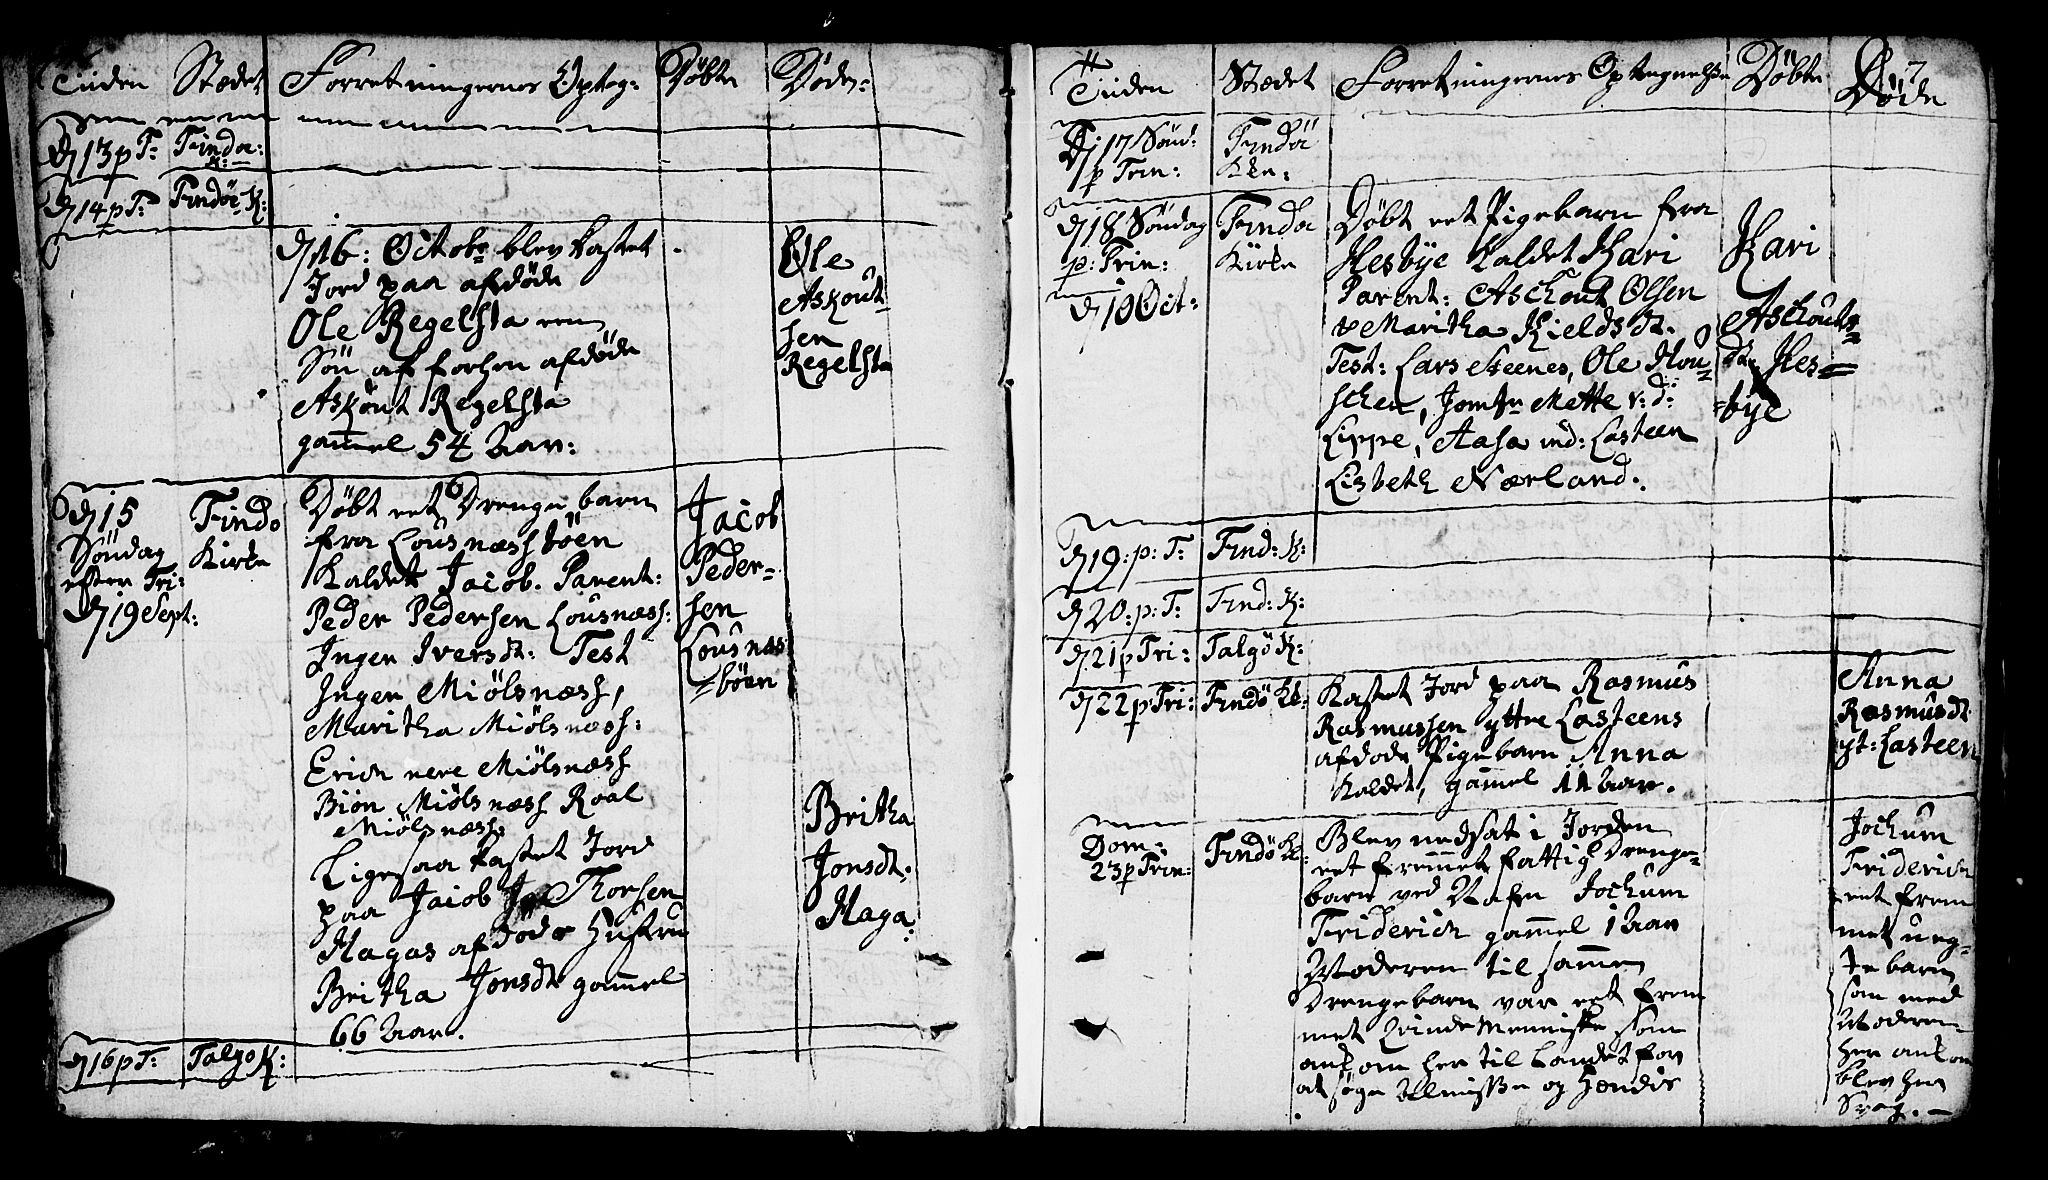 Tiiden Stædet Forretningernes Opteg: Döbte Döde:
D 13 p T: Findöe K:
D 14 p T: Findöe K:
D 16: Octobr blev kastet
Jord paa afdöde
Ole Regelsta een
Sön af forhen afdöde
Askout Regelsta
gammel 54 Aar:
Ole
Askout-
sen
Regelsta
D 15
Söndag
efter Tri:
D 19 Sept:
Findö
Kirke
Döbt eet Drenge barn
fra Lousnæss böen
Kaldet Jacob. Parent:
Peder Pedersen Lousnæss:
Ingen Iversdt: Test
Ingen Miölsnæss,
Maritha Miölsnæss:
Erich nere Miölsnæss
Biön Miölsnæss Roal
Miölsnæss.
Ligesaa kastet Jord
paa Jacob Thorsen
Hagas afdöde Hustru
Britha Jonsdt gammel
66 Aar.
Jacob
Peder-
sen
Lousnæs
=böen
Britha
Jonsdt:
Haga:
D 16 p T: Talgö K:
Tiiden Stædet Forretningernes Optegnelse Döbte Döde
7
D 17 Sönd:
p Trin:
Findöe
Kke:
D 18 Söndag
p: Trin:
D 10 Oct:
Findöe
Kirke
Döbt eet Pigebarn fra
Hesbye kaldet Kari
Parent: Aschout Olsen
& Maritha Kieldsdt.
Test: Lars Steenes, Ole Hou-
schen, Jomfr Mette v: d:
Lippe, Aasa ind: Lasteen
Lisbeth Nærland.
Kari
Aschouts=
dtr Hes=
=bye
D 19: p: T: Find: K:
D 20: p: T: Find: K:
D 21 p Tri: Talgö K:
D 22 p Tri: Findö K:
Kastet Jord paa Rasmus
Rasmussen yttre Lasteens
afdöde Pigebarn Anna
Kaldet, gammel 11 Aar.
Anna
Rasmusdt
yt: Lasteen
Dom:
23 p Trin:
Findö K:
Blev nedsat i Jorden
eet fremmet fattig Drenge-
barn ved Nafn Jochum
Friderich gammel 1 Aar
Moderen til sammen
Drengebarn var eet frem
met Qvinde Menniske som
ankom her til Landet for
at söge Almisse og Hendis
Jochum
Friderich
eet frem
met ueg-
te barn
som med
Moderen
her ankom
blev her
Svag.